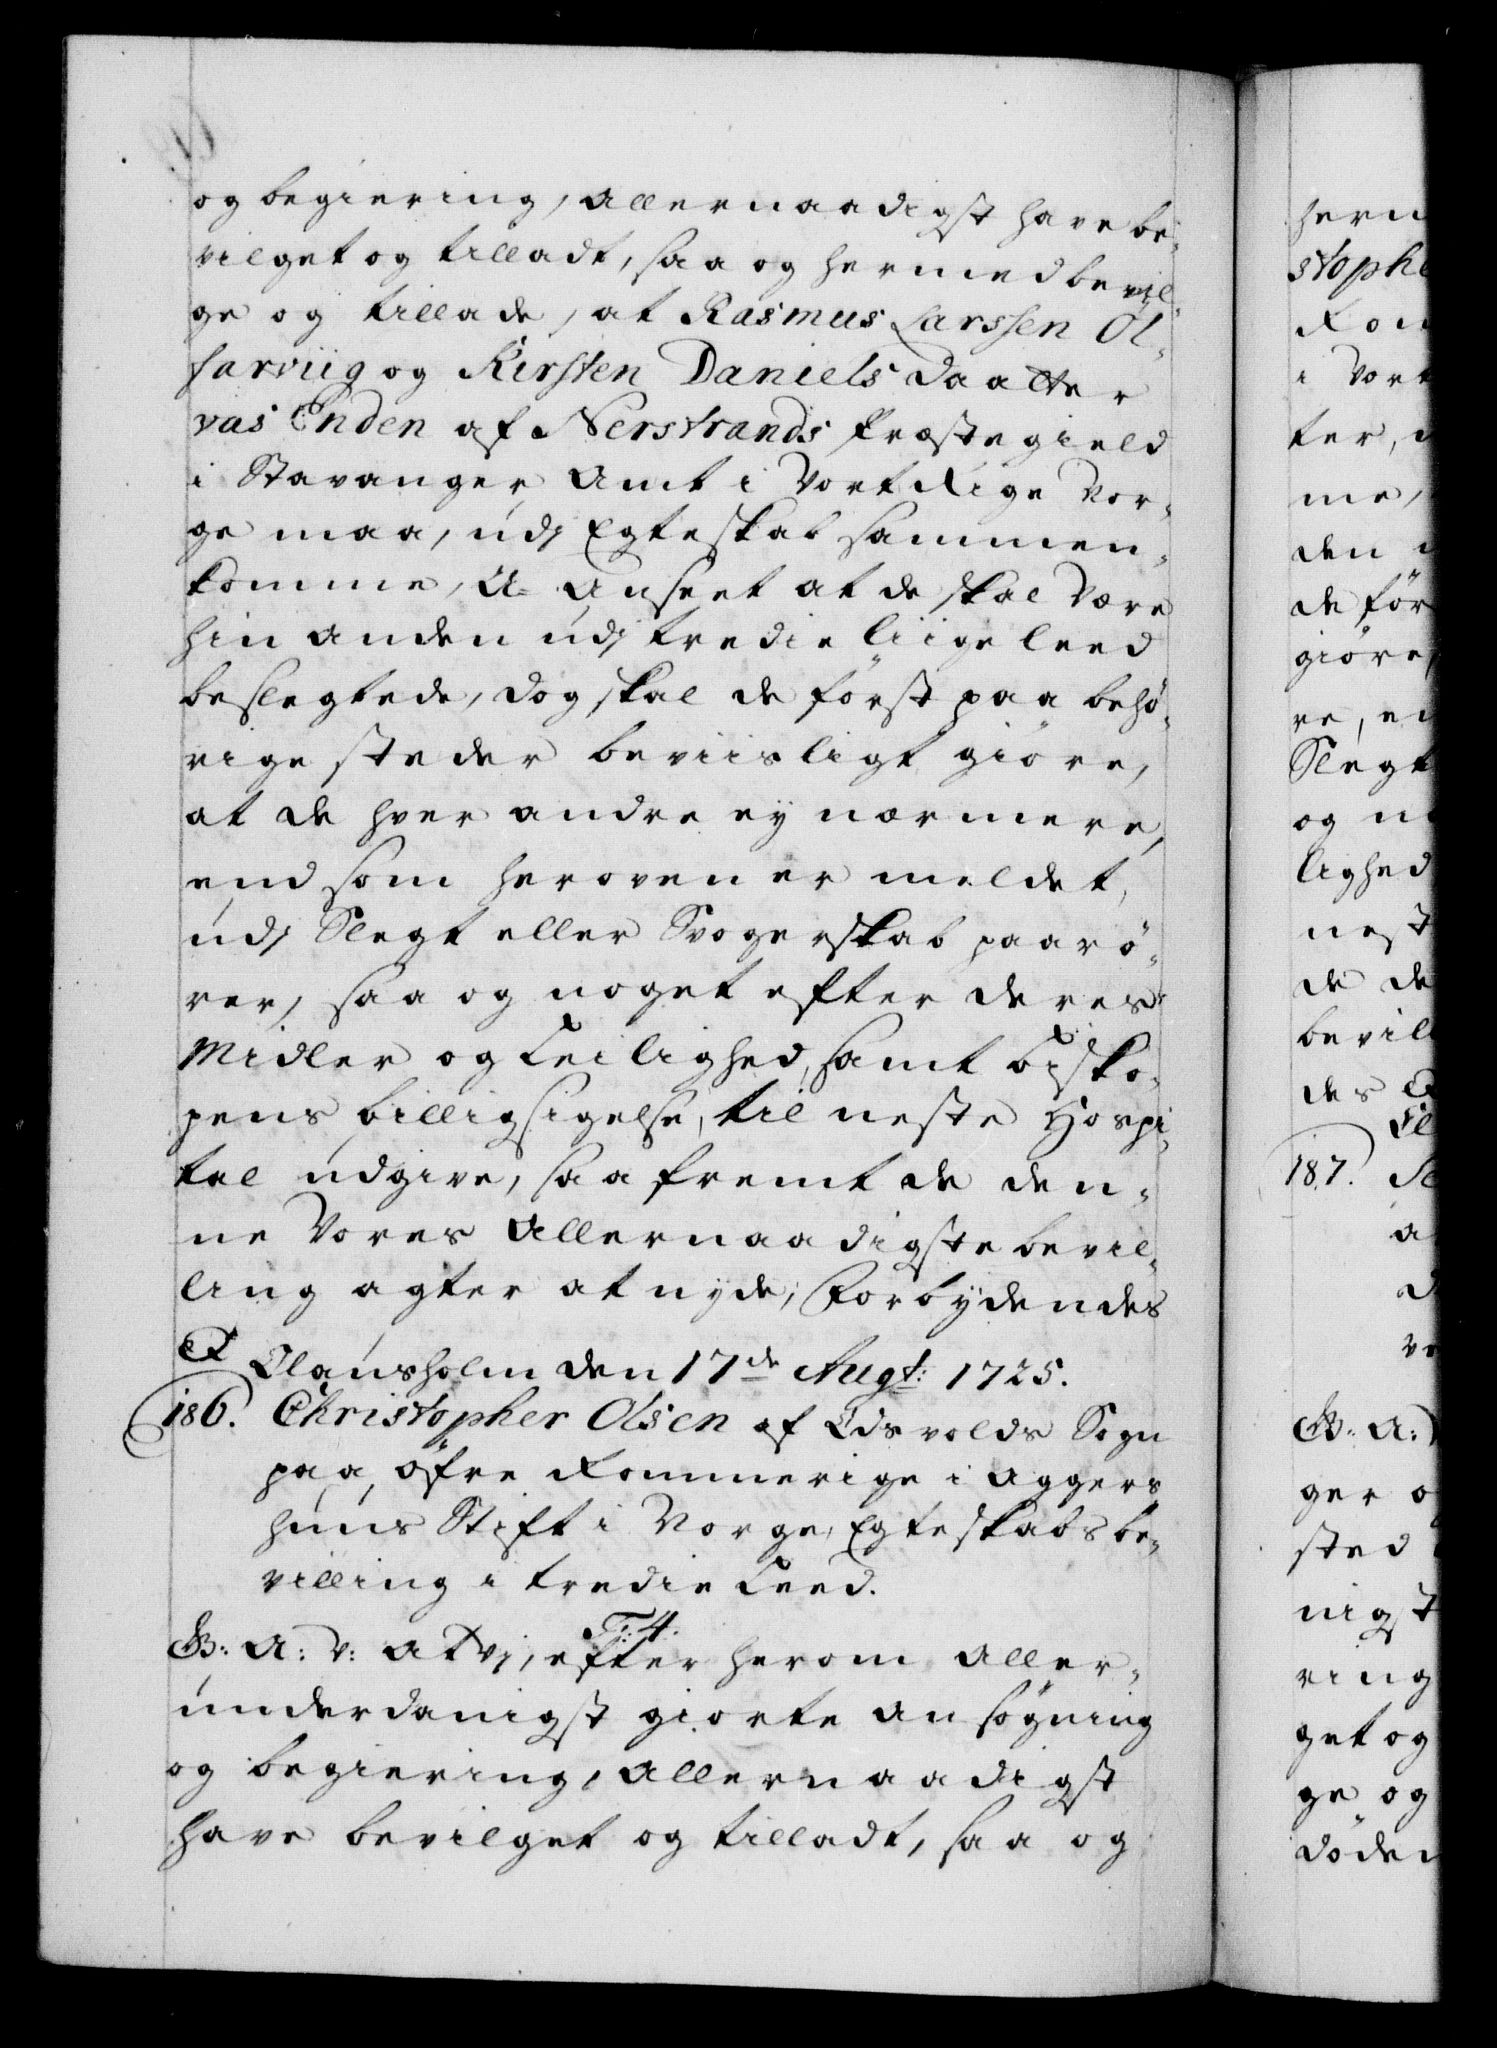 og begiering, allernaadigst have be-
vilget og tilladt, saa og hermed bevil-
ge og tillade, at Rasmus Larssen Ol-
farviig og Kirsten Daniels daatter
vas Enden af Nerstrands Præstegield
i Stavanger Amt i Vort Rige Nor-
ge maa, udj Egteskab sammen-
komme, U-Anseet at de skal Være
hin anden udj tredie liige leed
beslegtede, dog skal de först paa behö-
rige steder beviisligt giöre,
at de hver andre ej nærmere,
end som heroven er meldet,
udj Slegt eller Svogerskab paarö-
rer, saa og noget efter deres
Midler og Leilighed, samt Bisko-
pens billigsigelse, til neste Hospi-
tal udgive, saa fremt de den-
ne Vores Allernaadigste bevil-
ling agter at nyde, Forbydendes
&
Clausholm den 17de Augt: 1725.
186. Christopher Olsen af Eidsvolds Sogn
paa öfre Rommerige i Aggers
huus Stift i Norge, Egteskabs be-
villing i tredie Leed.
F: 4.
G: A: V: At Vj, efter herom aller-
underdanigst giorte ansögning
og begiering, allernaadigst
have bevilget og tilladt, saa og
herm
stophe
Rom
i Vort
ter,
me,
den
de för
giöre,
re, en
Slegt
og no
lighed
nest
de de
bevil
des
187.
G: A:
ger o
sted
nigst
ring
get og
ge og
döden